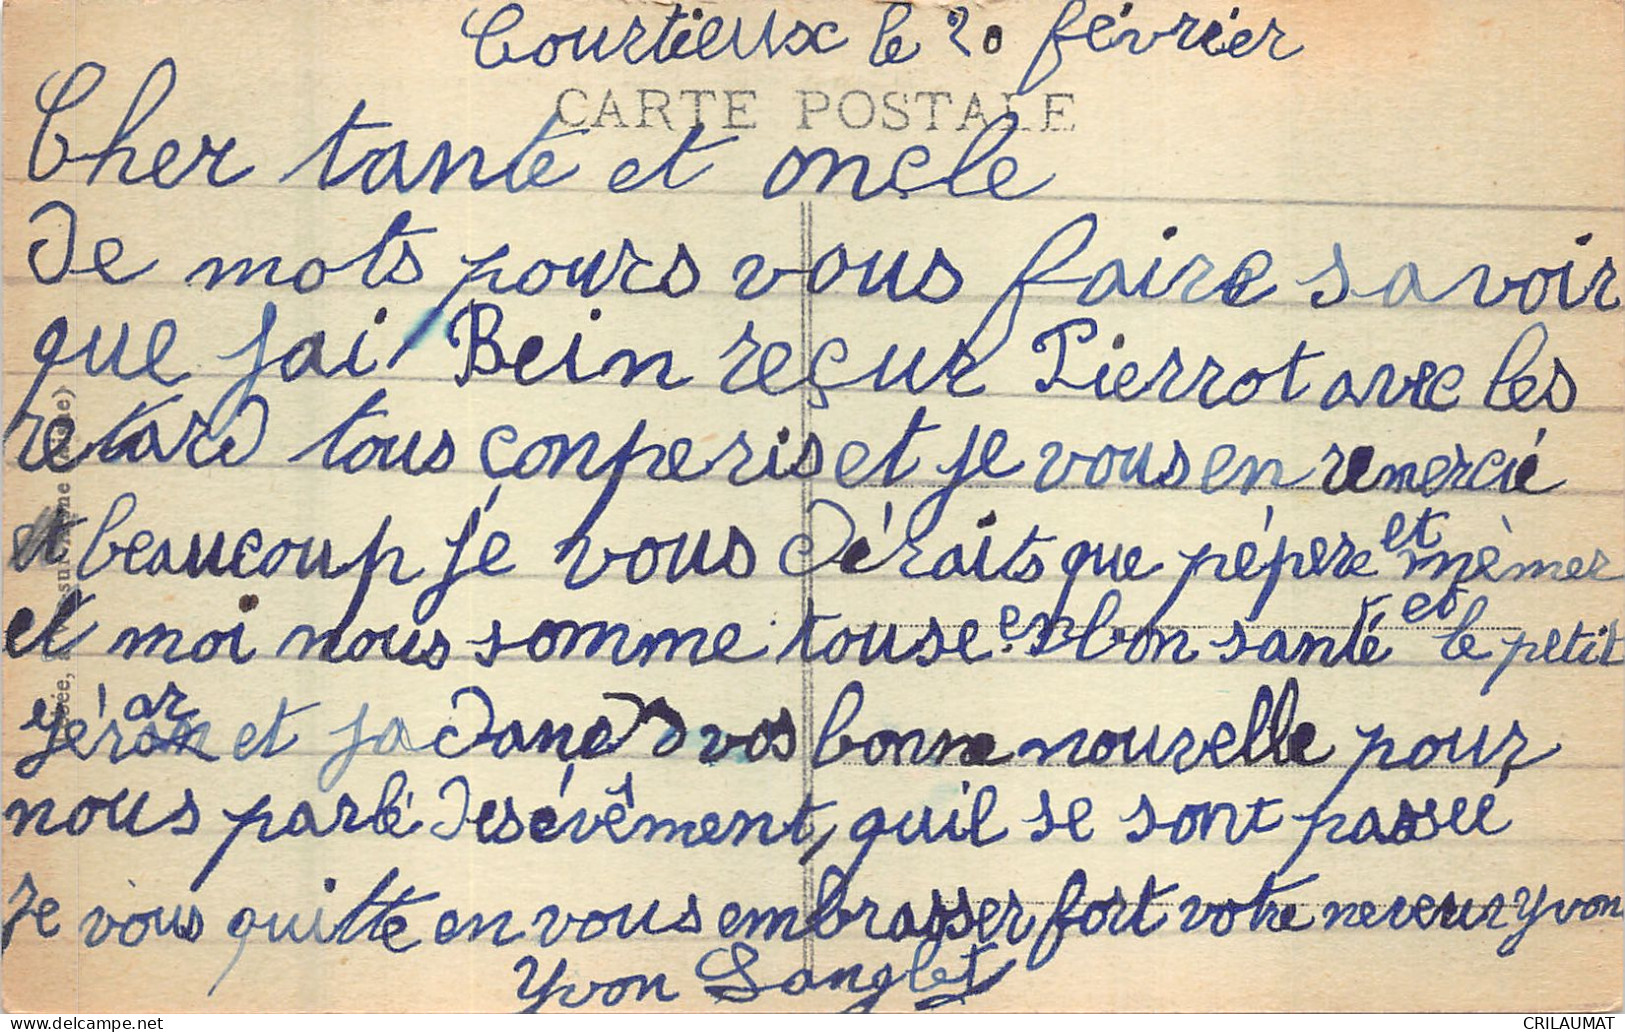 Courtieux le 20 février
CARTE POSTALE
Cher tante et oncle
De mots pours vous faire savoir
que jai Bein reçur Pierrot avec les
retard tous çonperis et je vous en remercié
et beaucoup je vous déraits que pépere et mèmer
et moi nous somme touse en bon santé et le petit
et ja vos bonne nouvelle pour
nous parlé des évêment, quil se sont passée
Je vous quitte en vous embrasser fort votre neveur Yvon
Yvon Langlet
CRILAUMAT